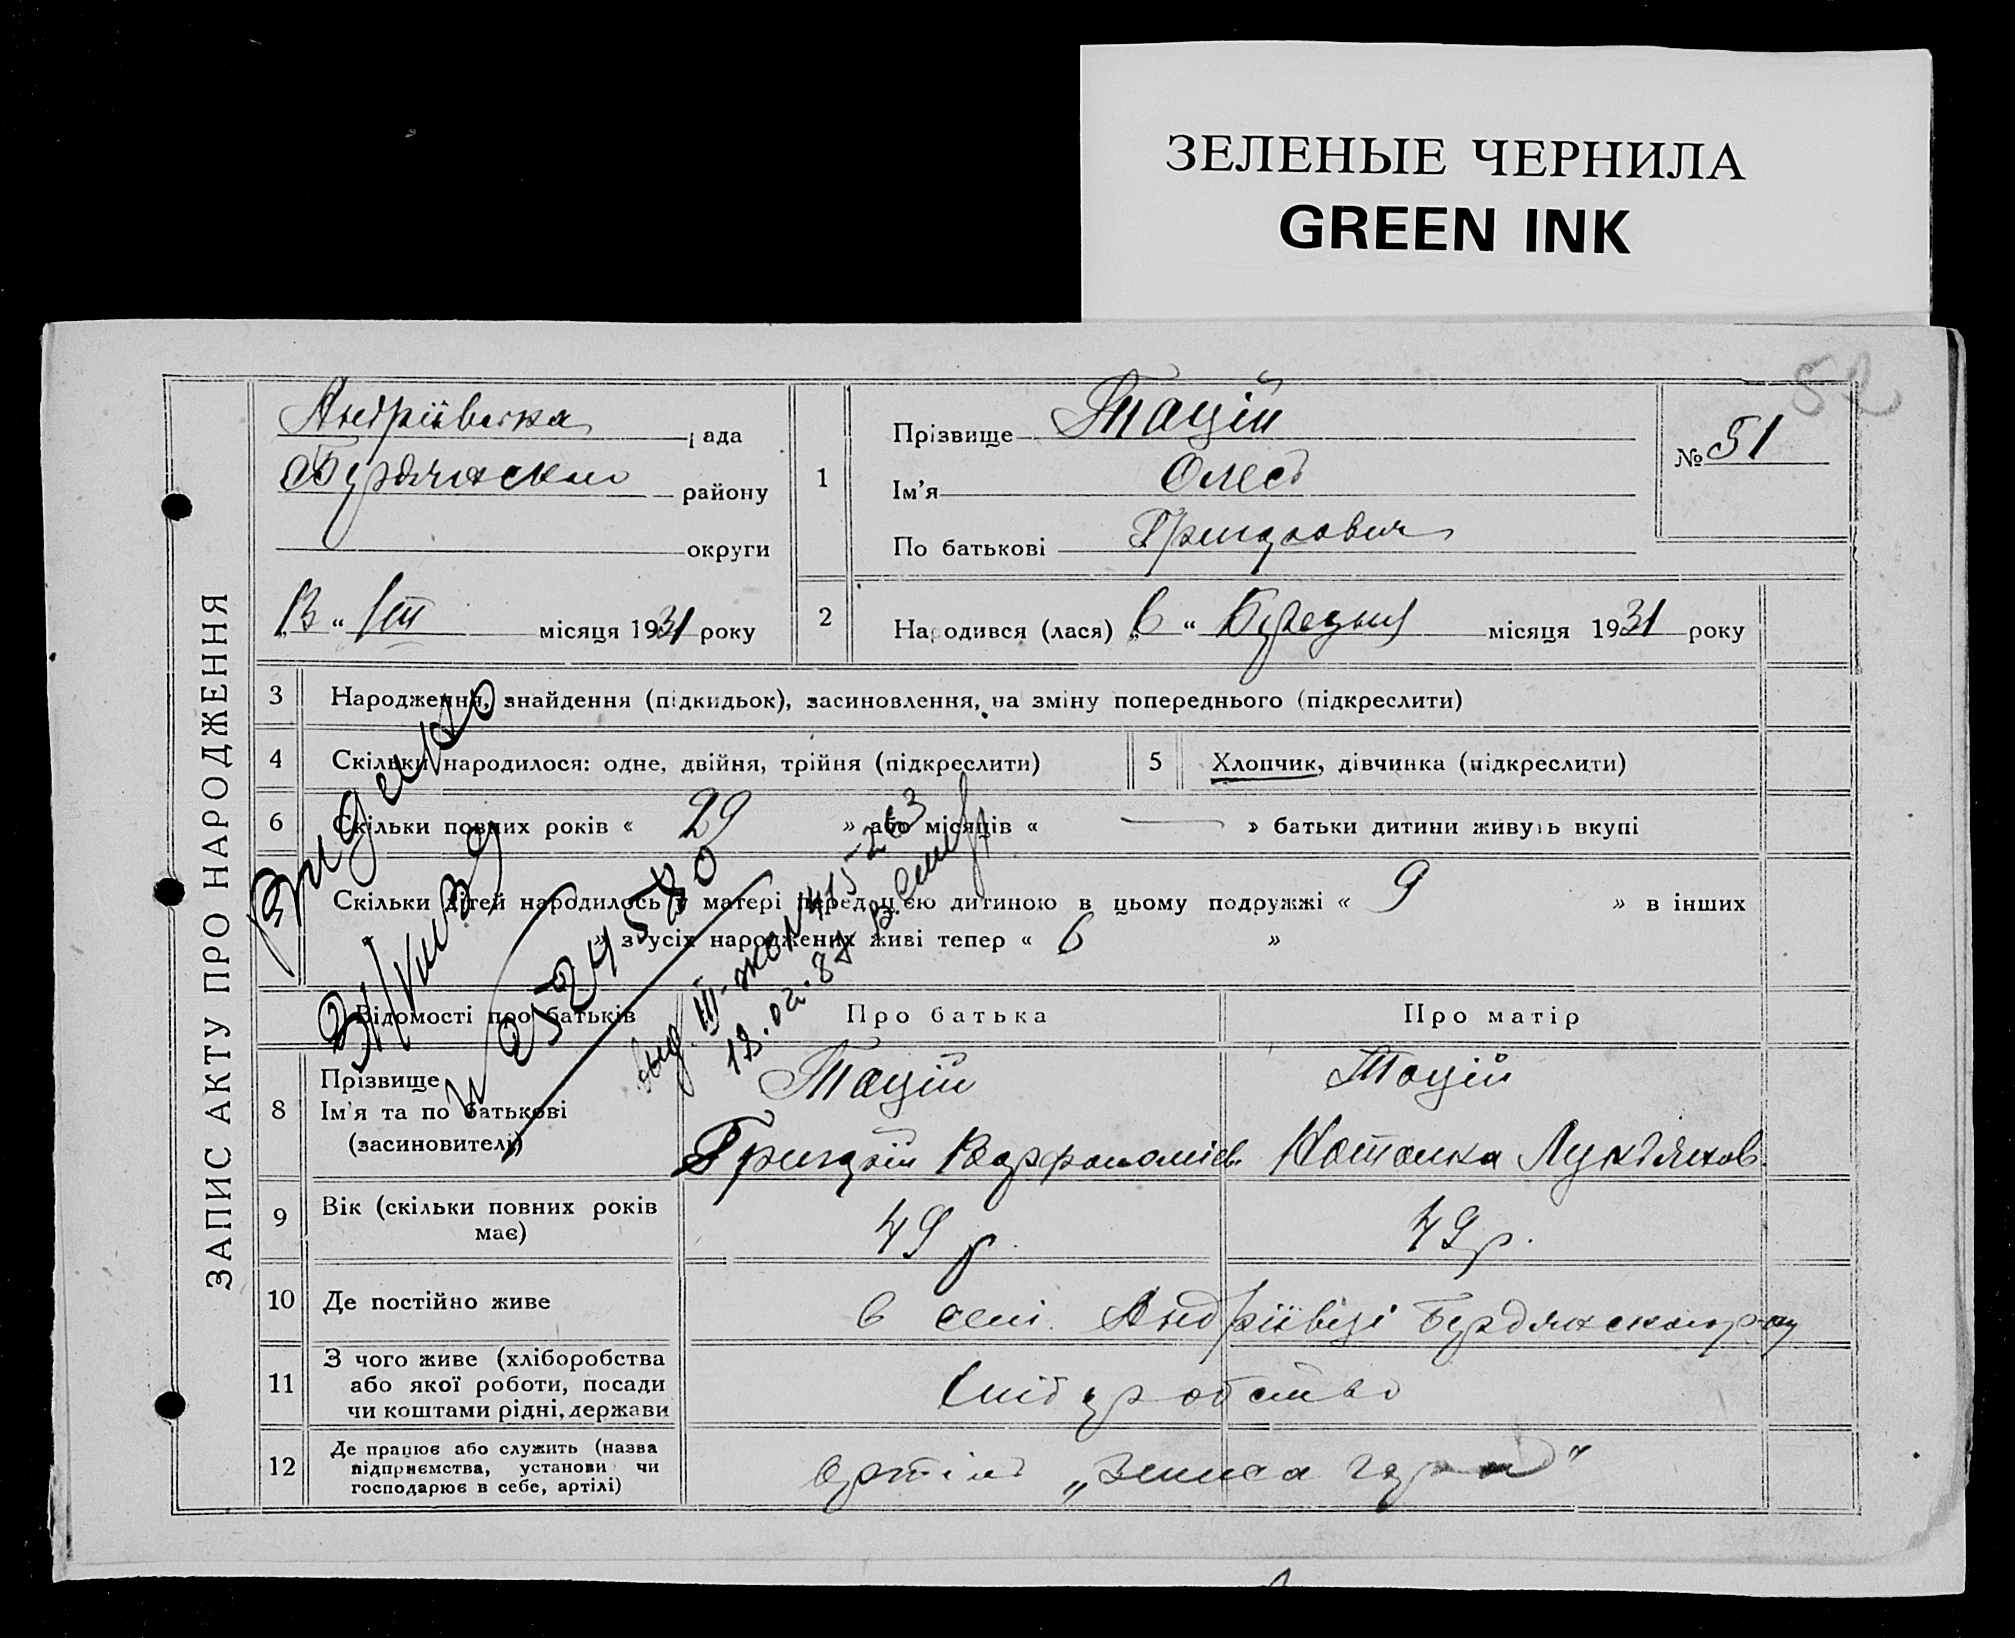 ЗЕЛЕНЫЕ ЧЕРНИЛА
GREEN INK
52
ЗАПИС АКТУ ПРО НАРОДЖЕННЯ
Андріївська рада
Бердянського району
округи
"13 " III місяця 1931 року
1
Прізвище Тацій
Ім'я Олесь
По батькові Григорович
№ 51
2
Народився (лася) „6 “ Березня місяця 1931 року
3 Народження, знайдення (підкидьок), засиновлення, на зміну попереднього (підкреслити)
4 Скільки народилося: одне, двійня, трійня (підкреслити)
5 Хлопчик, дівчинка (підкреслити)
6 Скільки повних років « 29 » або місяців « — » батьки дитини живуть вкупі
Скільки дітей народилось у матері перед цією дитиною в цьому подружжі « 9 » в інших
» з усіх народжених живі тепер « 6 »
№ 2524580
18.02.87
Відомості про батьків
Про батька
Про матір
8
Прізвище
Ім'я та по батькові
(засиновителі)
Тацій
Григорій Варфоломієв.
Тацій
Наталка Лук'янов.
9 Вік (скільки повних років
має)
49 р.
49 р.
10 Де постійно живе
в селі Андріївці Бердянського р-ну
11
З чого живе (хліборобства
або якої роботи, посади
чи коштами рідні, держави
Хліборобство
12
Де працює або служить (назва
підприємства, установи чи
господарює в себе, артілі)
артіль